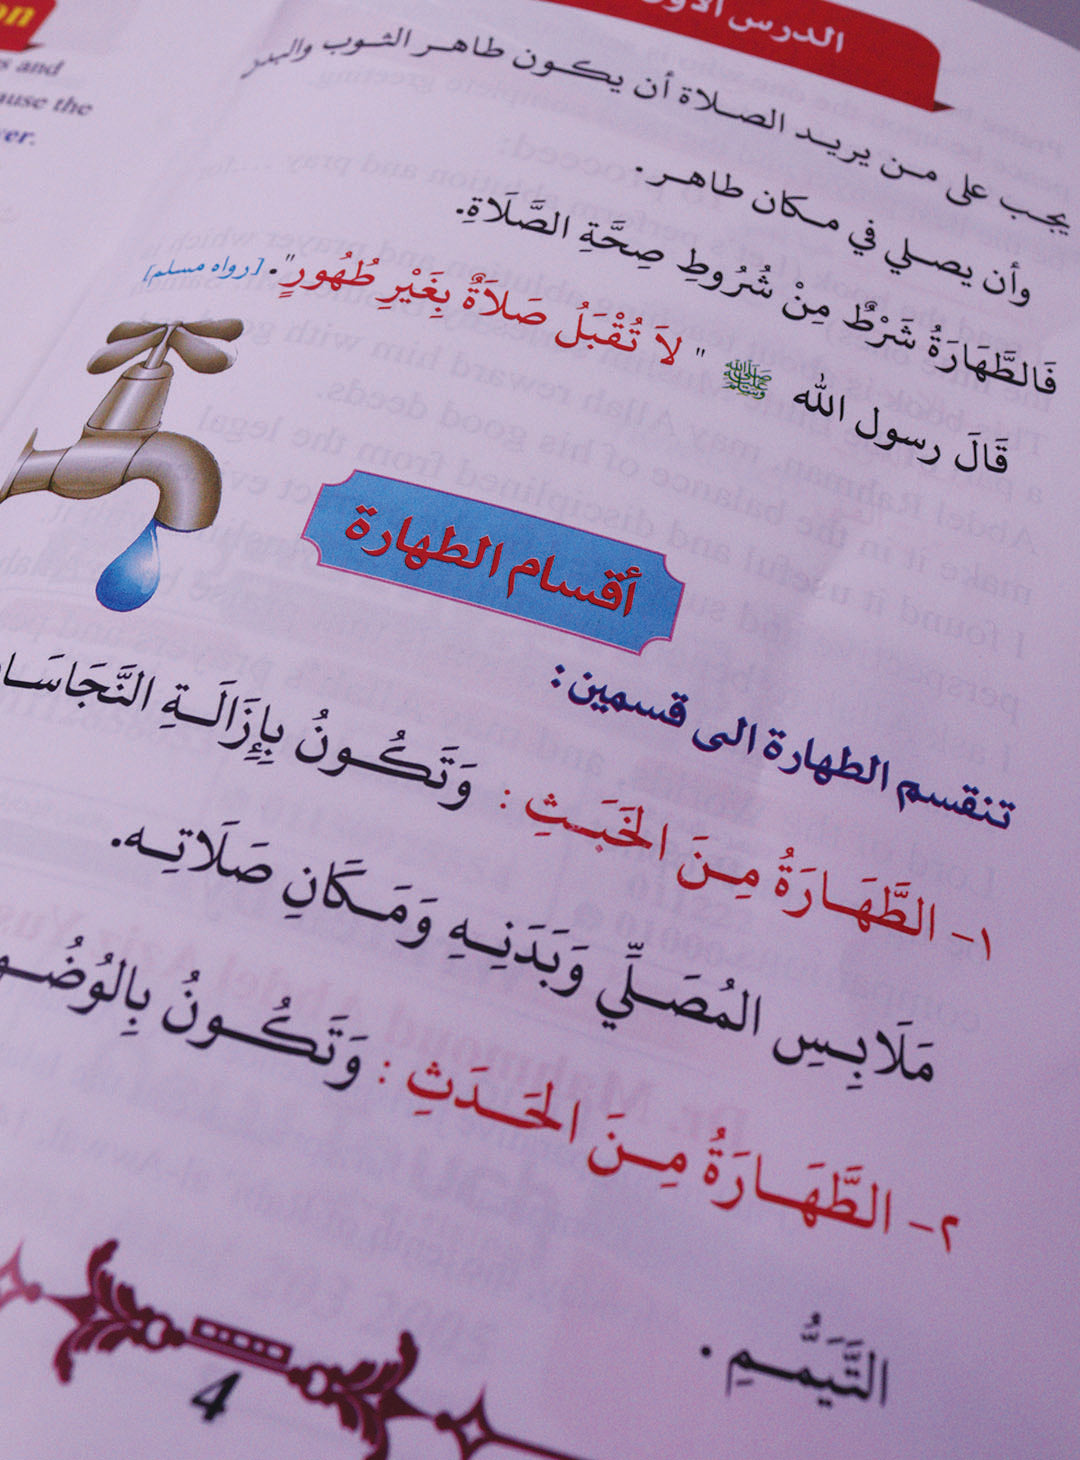 الدرس الأول
يجب على من يريد الصلاة أن يكون طاهر الثوب والبدن
وأن يصلي في مكان طاهر.
فَالطَّهَارَةُ شَرْطٌ مِنْ شُرُوطِ صِحَّةِ الصَّلَاةِ.
قَالَ رسول الله ﷺ " لاَ تُقْبَلُ صَلاَةٌ بِغَيْرِ طُهُورٍ". [رواه مسلم]
أقسام الطهارة
تنقسم الطهارة الى قسمين:
١- الطَّهَارَةُ مِنَ الخَبَثِ : وَتَكُونُ بِإِزَالَةِ
مَلَابِسِ المُصَلِّي وَبَدَنِهِ وَمَكَانِ صَلَاتِه.
٢- الطَّهَارَةُ مِنَ الحَدَثِ : وَتَكُونُ
التَّيَمُّمِ .
4
and
the